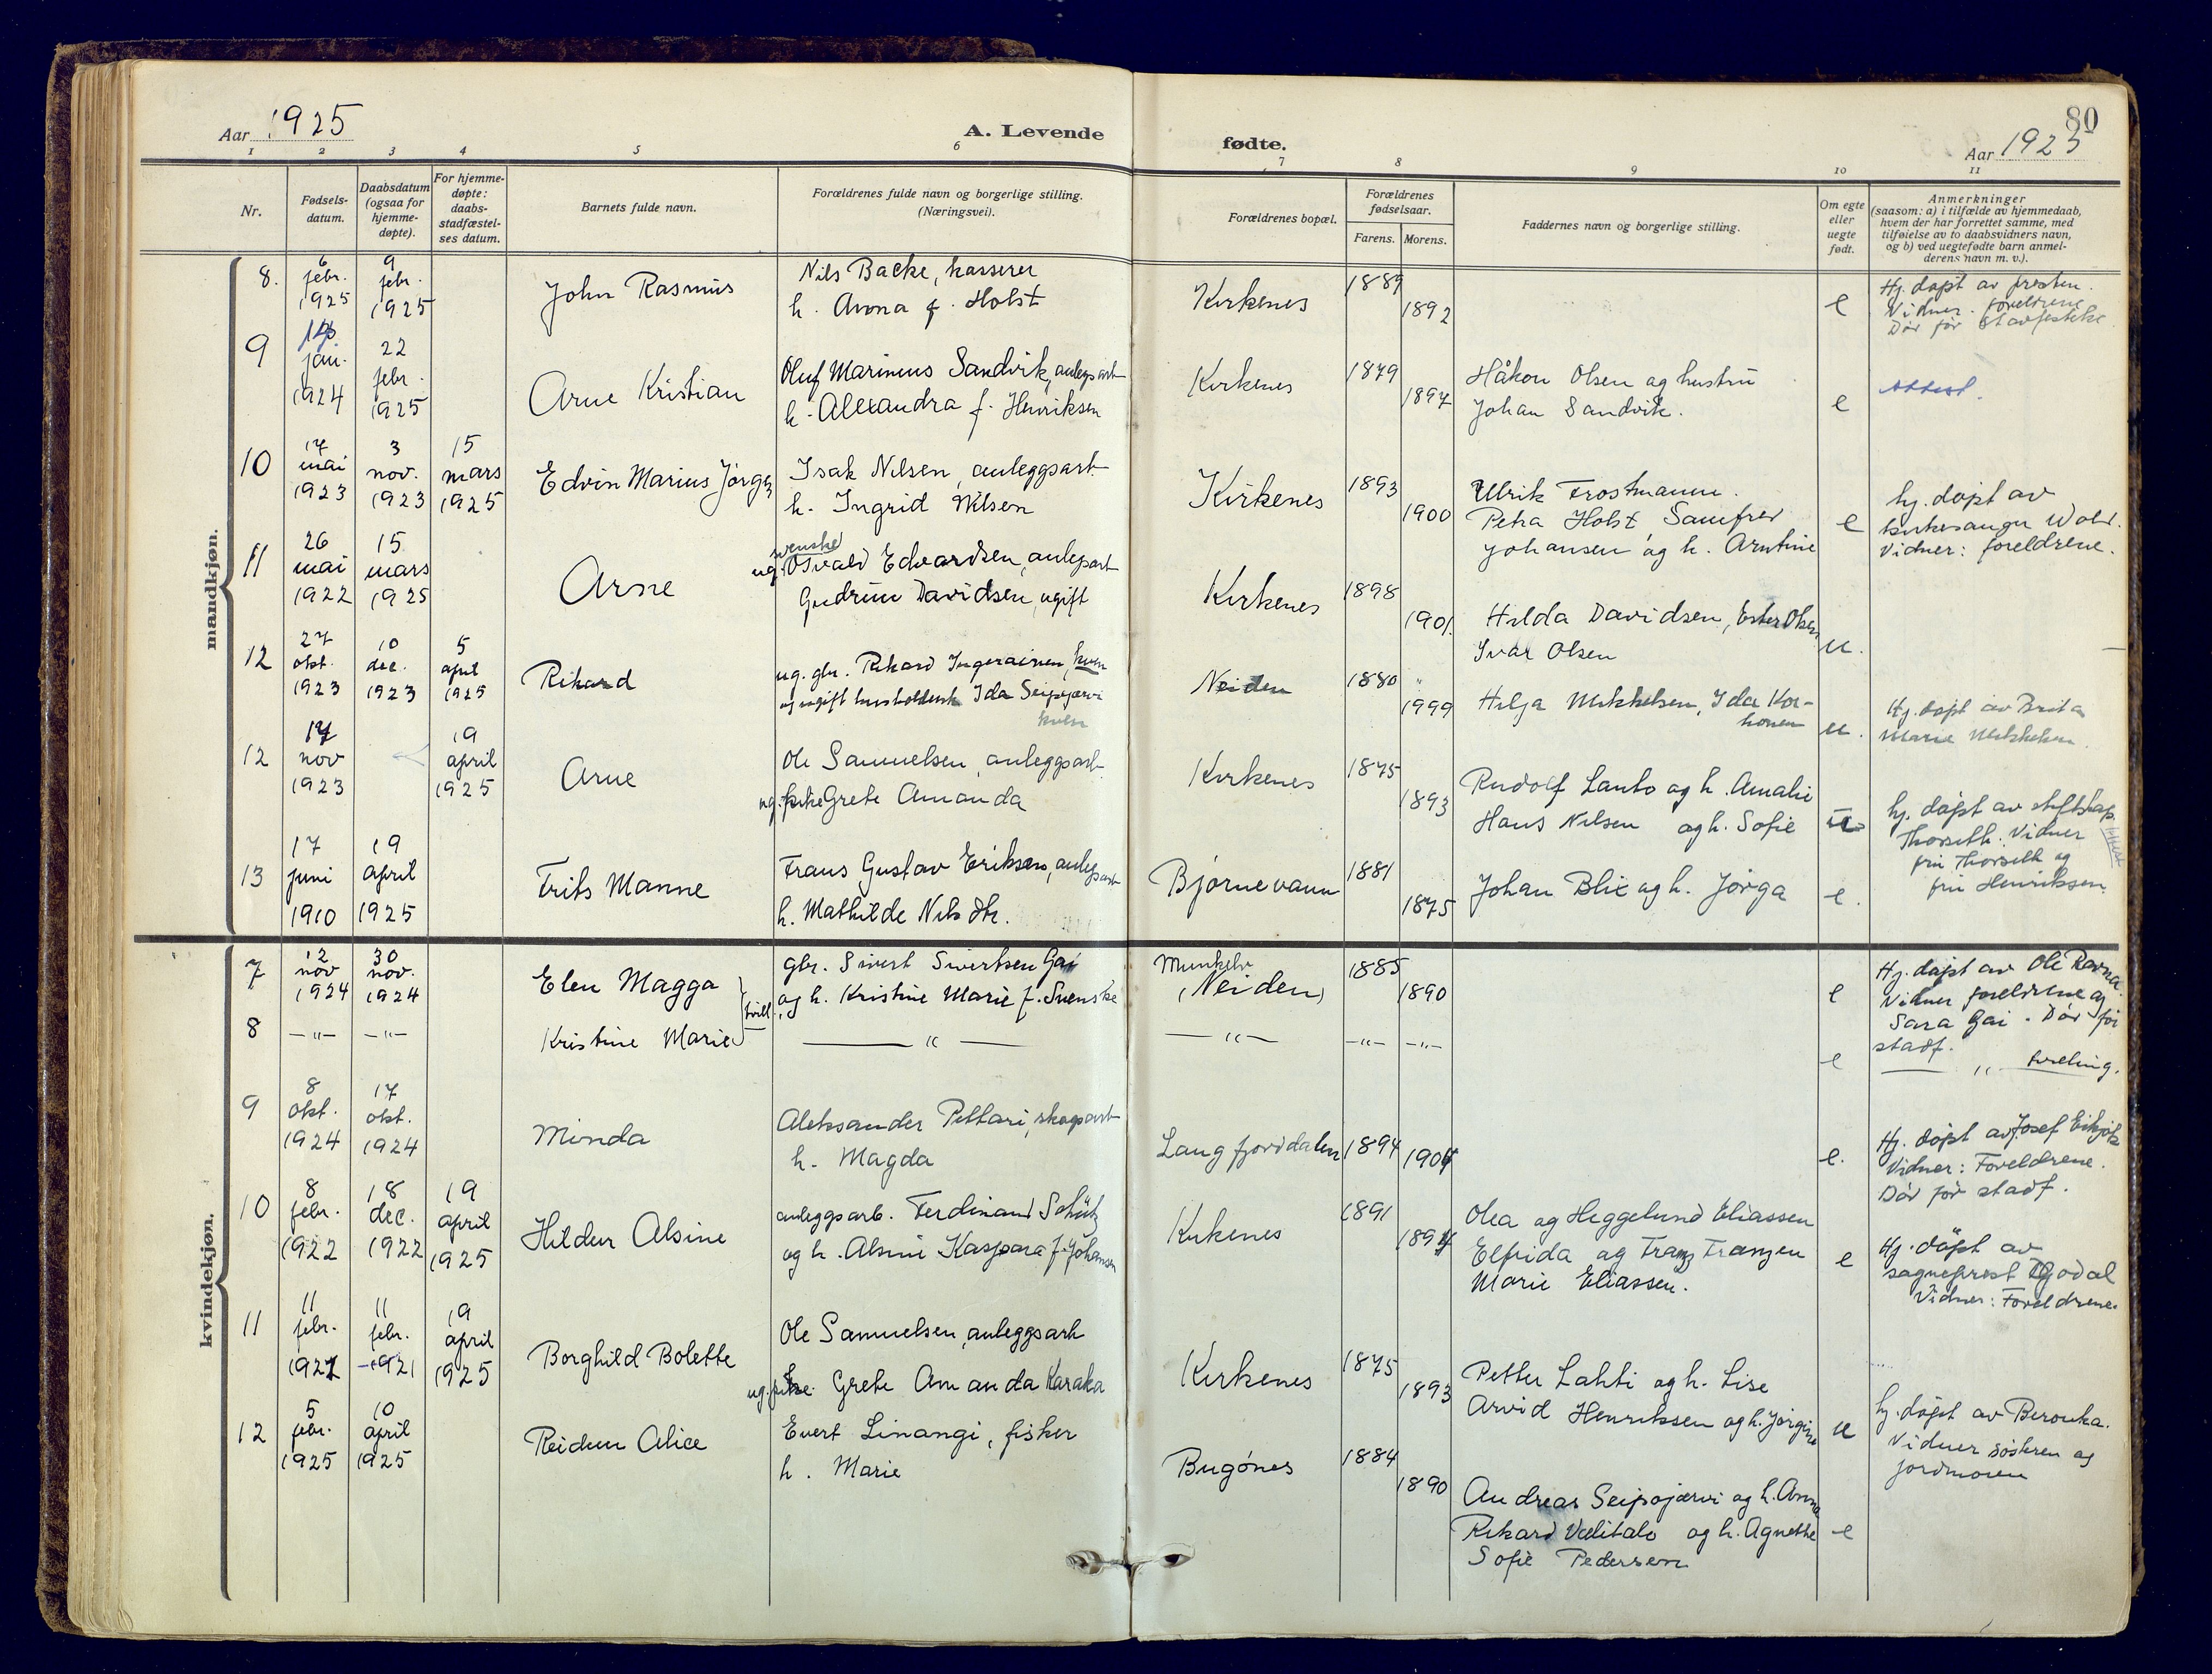 80
Aar 1925
A. Levende
fødte.
Aar 1925
1 2 3 4 5 6 7 8 9 10 11
Nr.
Fødsels-
datum.
Daabsdatum
(ogsaa for
hjemme-
døpte).
For hjemme-
døpte:
daabs-
stadfæstel-
ses datum.
Barnets fulde navn.
Forældrenes fulde navn og borgerlige stilling.
(Næringsvei).
Forældrenes bopæl.
Forældrenes
fødselsaar.
Farens. Morens.
Faddernes navn og borgerlige stilling.
Om egte
eller
uegte
født.
Anmerkninger
(saasom: a) i tilfælde av hjemmedaab,
hvem der har forrettet samme, med
tilføielse av to daabsvidners navn,
og b) ved uegtefødte barn anmel-
derens navn m. v.).
mandkjøn.
8.
6
febr.
1925
9
febr.
1925
John Rasmus
Nils Backe, kasserer
h. Anna f. Holst
Kirkenes
1889
1892
e
Hj. døpt av presten.
Vidner. foreldrene
Død før stadfestelse
9
jan.
1924
22
febr.
1925
Arne Kristian
Oluf Marinius Sandvik, anlegsarb
h. Alexandra f. Henriksen
Kirkenes
1879
1897
Håkon Olsen og hustru
Johan Sandvik.
e
Attest.
10
17
mai
1923
3
nov.
1923
15
mars
1925
Edvin Marius Jørgen
Isak Nilsen, anleggsarb
h. Ingrid Nilsen
Kirkenes
1893
1900
Ulrik Frostmann.
Petra Holst Samfrid
Johansen og h. Arntine
e
hj. døpt av
kirkesanger Wold.
Vidner: foreldrene.
11
26
mai
1922
15
mars
1925
Arne
svenske
ug. Osvald Edvardsen, anlegsarb
Gudrun Davidsen, ugift
Kirkenes
1898
1901.
Hilda Davidsen, Ester Olsen
Ivar Olsen
u.
12
27
okt.
1923
10
dec.
1923
5
april
1925
Rikard
ug. gbr. Rikard Ingerainen, kven
og ugift husholdersk Ida Seipojærvi
kven
Neiden
1880
1999
Hilja Mikkelsen, Ida Kor-
honen
u.
Hj. døpt av Brita
Marie Mikkelsen.
12
17
nov
1923
19
april
1925
Arne
Ole Samuelsen, anleggsarb
ug. pike Grete Amanda
Kirkenes
1875
1893
Rudolf Lanto og h. Amalie
Hans Nilsen og h. Sofie
u
hj. døpt av stiftskap.
Thorseth. Vidner
fru Thorseth og
fru Henriksen.
13
17
juni
1910
19
april
1925
Frits Manne
Frans Gustav Eriksen, anlegsarb
h. Mathilde Nilsdtr.
Bjørnevann
1881
1875
Johan Blix og h. Jørga
e.
kvindekjøn.
7
12
nov
1924
30
nov.
1924
Elen Magga
tvill.
gbr. Sivert Sivertsen Gai
og h. Kristine Marie f. Svenske
Munkelv
(Neiden)
1885
1890
e
Hj. døpt av Ole Ravna.
Vidner foreldrene og
Sara Gai. Død før
stadf.
8
—"— —"—
Kristine Marie
—— " ——
—"—
—"— —"—
e
—— " tvilling.
9
8
okt.
1924
17
okt.
1924
Minda
Aleksander Pettari, skogsarb
h. Magda
Langfjorddalen
1894
1904
e.
Hj. døpt av Josef Eikjok
Vidner: Foreldrene.
Død før stadf.
10
8
febr.
1922
18
dec.
1922
19
april
1925
Hildur Alsine
anleggsarb. Ferdinand Schütz
og h. Alsine Kaspara f. Johansen
Kirkenes
1891
1894
Olea og Heggelund Eliassen
Elfrida og Franz Franzen
Marie Eliassen.
e
Hj. døpt av
sogneprest Godal
Vidner: Foreldrene.
11
11
febr.
1921
11
febr.
1921
19
april
1925
Borghild Bolette
Ole Samuelsen, anleggsarb
ug. pike Grete Amanda Karaka
Kirkenes
1875
1893
Petter Lahti og h. Lise
Arvid Henriksen og h. Jørgine
u
hj. døpt av Beronka.
Vidner søsteren og
jordmoren
12
5
febr.
1925
10
april
1925
Reidun Alice
Evert Linangi, fisker
h. Marie
Bugønes
1884
1890
Andreas Seipojærvi og h. Anna
Rikard Vælitalo og h. Agnethe
Sofie Pedersen
e